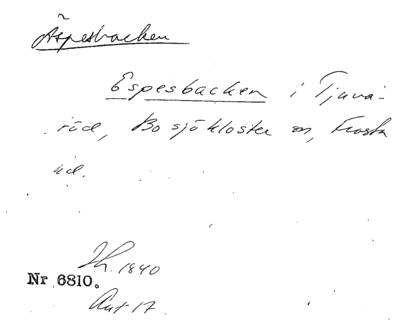 Äspesbacken
Espesbacken i Tjuva-
röd, Bosjökloster sn, Frosta
hd.
Th. 1840
Nr 6810.
Ant 17.